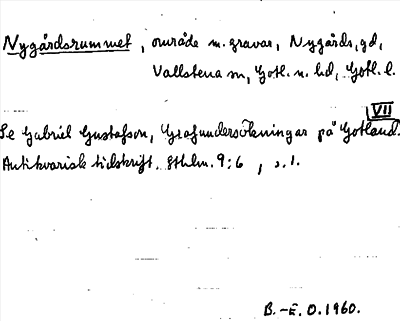 Nygårdsrummet, område m. gravar, Nygårds, gd,
Vallstena sn, Gotl. n. hd, Gotl. l.
VII
Se Gabriel Gustafson, Grafundersökningar på Gotland.
Antikvarisk tidskrift. Sthlm. 9:6, s. 1.
B.-E. O. 1960.